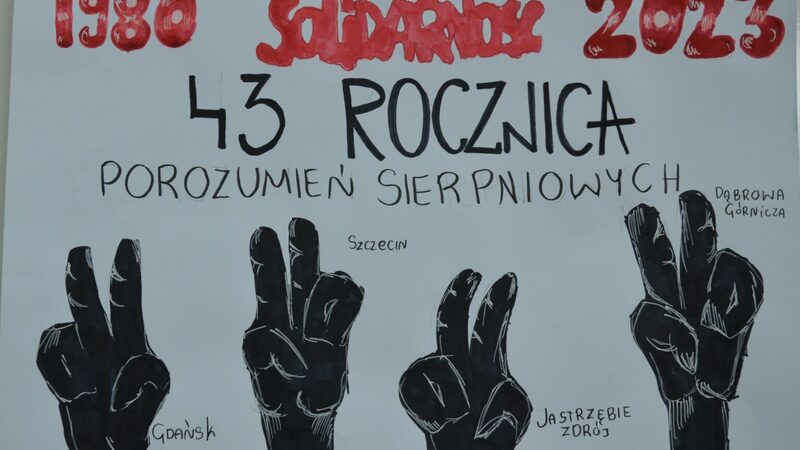 1980 SOLIDARNOŚĆ 2023
43 ROCZNICA
POROZUMIEŃ SIERPNIOWYCH
DĄBROWA
GÓRNICZA
SZCZECIN
GDAŃSK
JASTRZĘBIE
ZDRÓJ